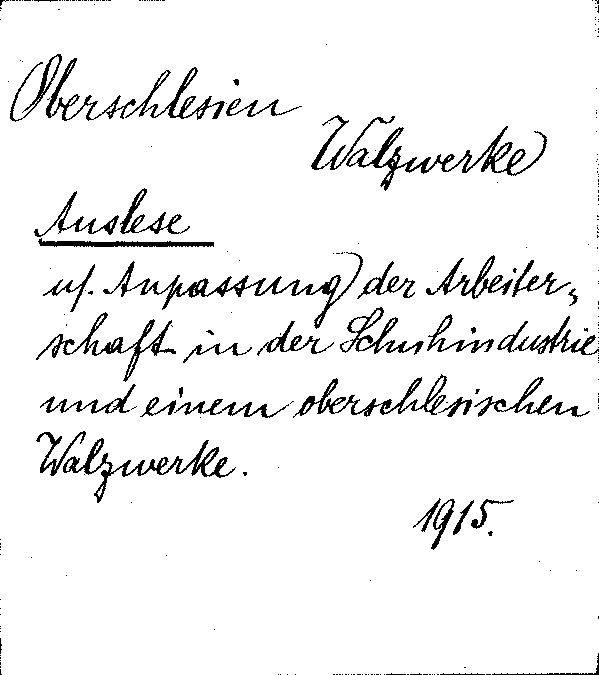 Oberschlesien
Walzwerke
Auslese
u. Anpassung der Arbeiter-
schaft in der Schuhindustrie
und einem oberschlesischen
Walzwerke.
1915.